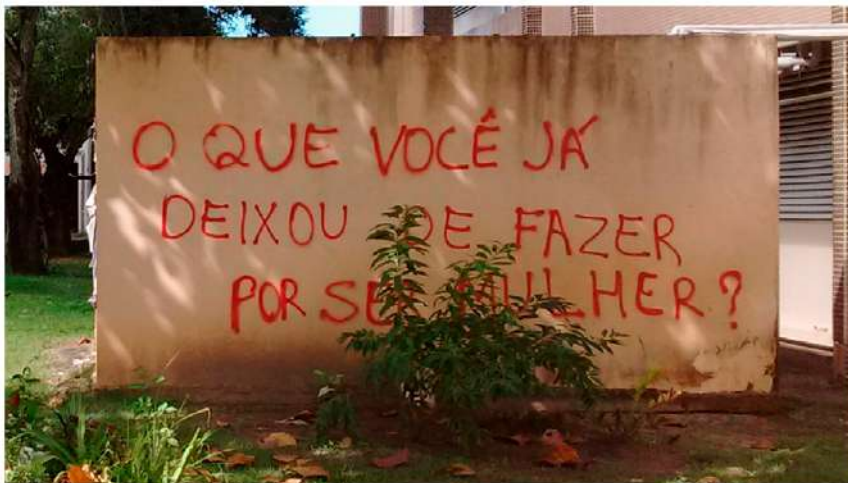 O QUE VOCÊ JÁ
DEIXOU DE FAZER
POR SER MULHER?